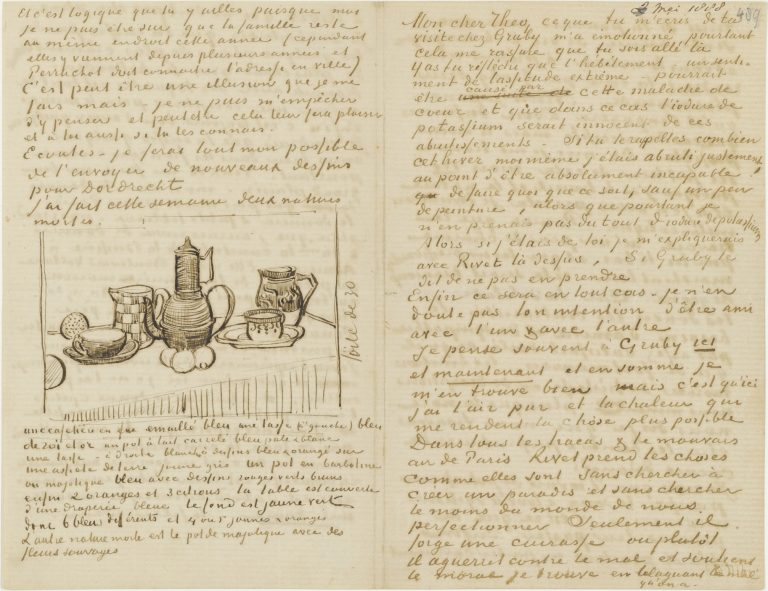 Et c'est logique que tu y ailles puisque moi
je ne puis être sur que la famille reste
au même endroit cette année (cependant
elles y vannent depuis plusieurs années et
Perruchot doit connaitre l'adresse en ville)
C'est peut être une illusion que je me
fais mais – je ne puis m'empêcher
d'y penser et peut être cela leur fera plaisir
et à toi aussi si tu les connais.
Ecoutes – je ferai tout mon possible
de t'envoyer de nouveaux dessins
pour Dordrecht
J'ai fait cette semaine deux natures
mortes.
toile de 30
une cafetière en fer emaillé bleu une tasse (à gauche) bleu
de roi et or un pot à lait carrelé bleu pale & blanc
une tasse – à droite blanche à dessins bleus & orangé sur
une assiette de terre jaune gris un pot en barbotine
ou majolique bleu avec dessins rouges verts bruns
enfin 2 oranges et 3 citrons la table est couverte
d'une draperie bleue le fond est jaune vert
donc 6 bleus différents et 4 ou 5 jaunes & oranges
L'autre nature morte est le pot de majolique avec des
fleurs sauvages
Mei 1888
489
Mon cher Theo, ce que tu m'écris de ta
visite chez Gruby m'a emotionné pourtant
cela me rassure que tu sois allé là
Y as tu réfléchi que l'hébêtement – un senti-
ment de lassitude extrême – pourrait
être causé par cette maladie de
coeur et que dans ce cas l'iodure de
potassium serait innocent de ces
abrutissements. Si tu te rapelles combien
cet hiver moi même j'étais abruti justement
au point d'être absolument incapable
de faire quoi que ce soit, sauf un peu
de peinture, alors que pourtant je
n'en prenais pas du tout d'iodure de potassium
Alors si j'étais de toi je m'expliquerais
avec Rivet là dessus, Si Gruby te
dit de ne pas en prendre
Enfin ce sera en tout cas – je n'en
doute pas ton intention d'être ami
avec l'un & avec l'autre
Je pense souvent à Gruby ici
et maintenant et en somme je
m'en trouve bien mais c'est qu'ici
j'ai l'air pur et la chaleur qui
me rendent la chose plus possible
Dans tous les tracas & le mauvais
air de Paris Rivet prend les choses
comme elles sont sans chercher à
créer un paradis et sans chercher
le moins du monde de nous
perfectionner Seulement il
forge une cuirasse ou plutôt
il aguerrit contre le mal et soutient
le moral je trouve en blaguant le mal
qu'on a.